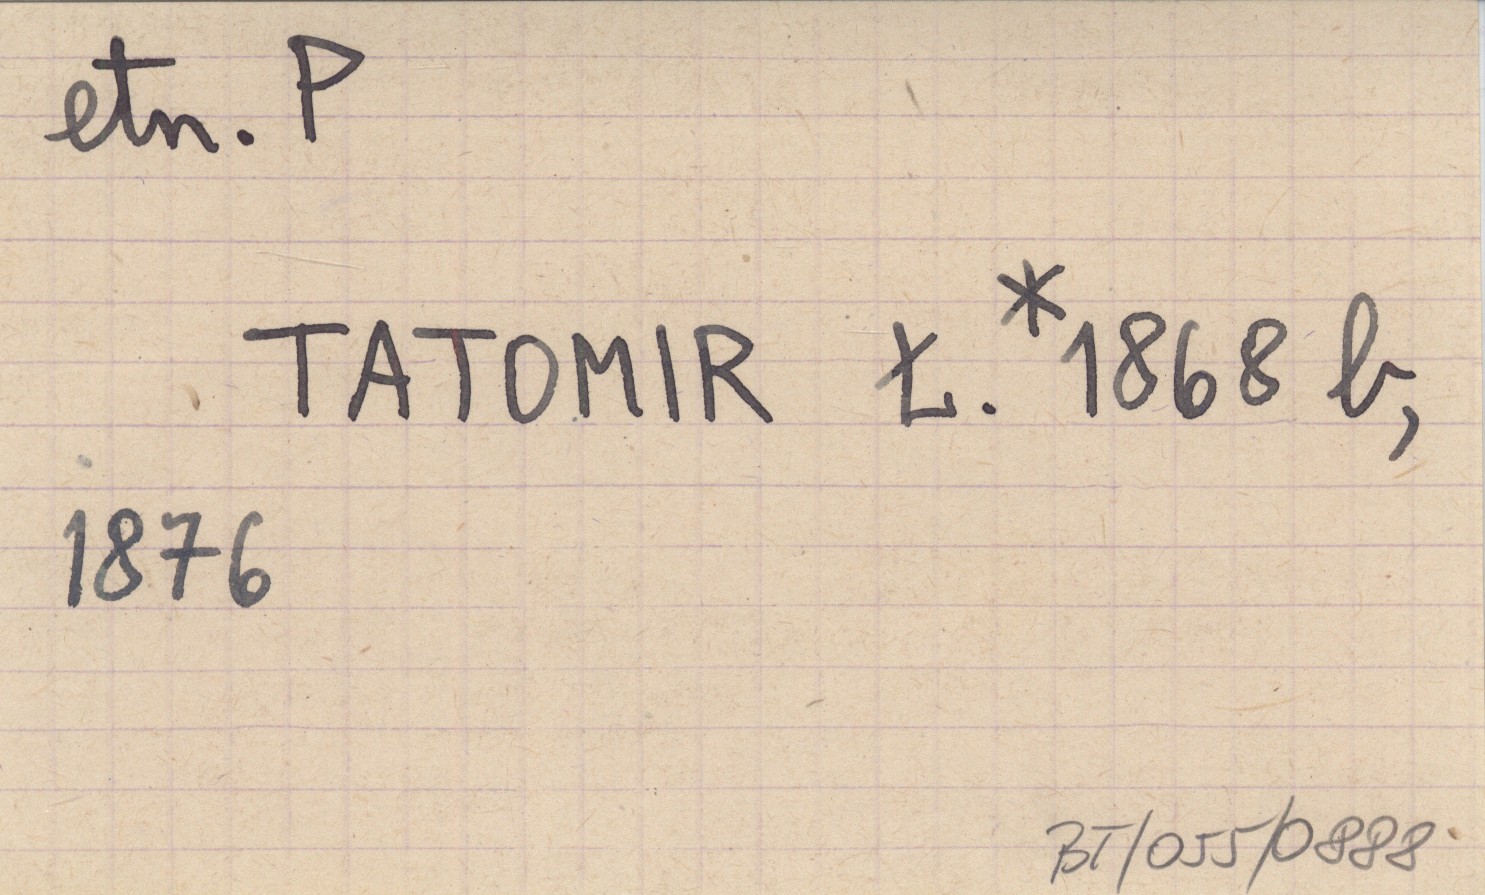 etn. P
TATOMIR Ł.*1868 b,
1876
BT/055/0888